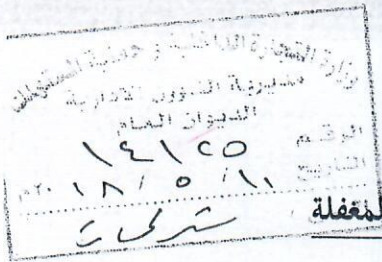 وزارة التجارة الداخلية و حماية المستهلك
مديرية الشؤون الادارية
الديوان العام
الرقم ١٤١٢٥
التاريخ ١١ / ٥ / ١٨ ٢٠ م
المغفلة
شركات